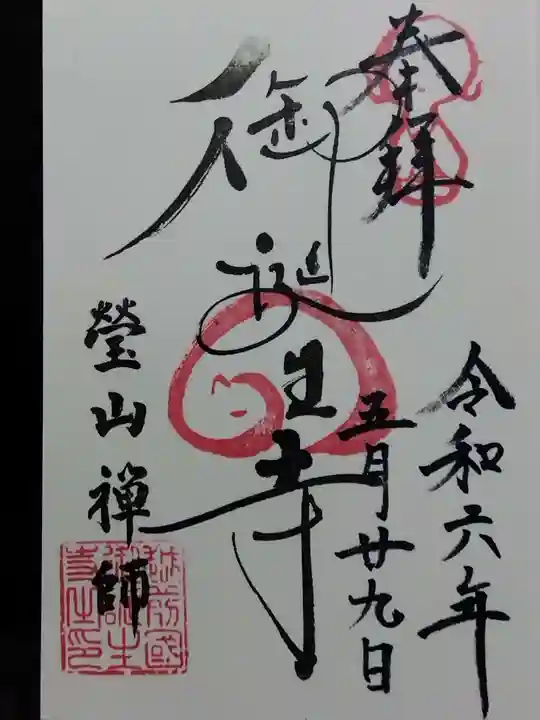 奉拝
令和六年
五月廿九日
御誕生寺
瑩山禅師
越前國
御誕生
寺之印